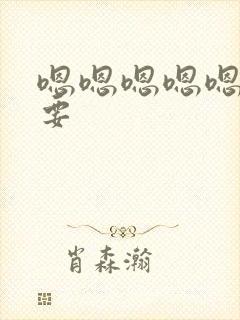 嗯嗯嗯嗯嗯
要
肖森瀚